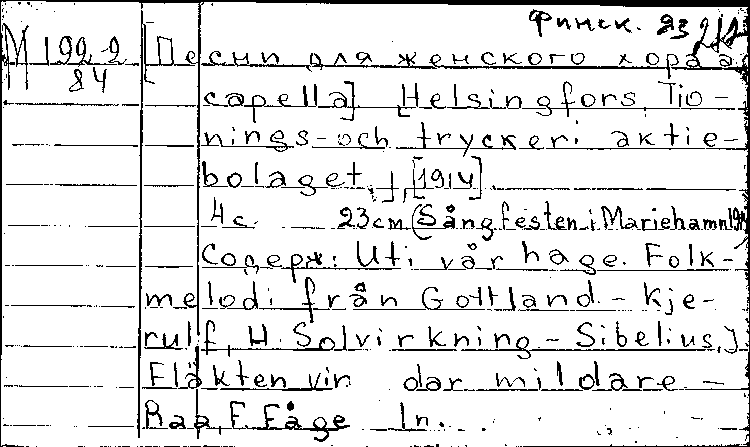 Финск. яз
М 199-2 [Песни для женского хора a
84 capella]. [Helsingfors, Tio-
nings-och tryckeri aktie-
bolaget,], [1914].
4с. 23см (Sångfesten i Mariehamn
Содерж: Uti vår hage. Folk-
melodi från Gottland. - Kje-
rulf, H. Solvirkning - Sibelius, J.
Fläkten vin dar mildare -
Raa, F. Fåge ln...